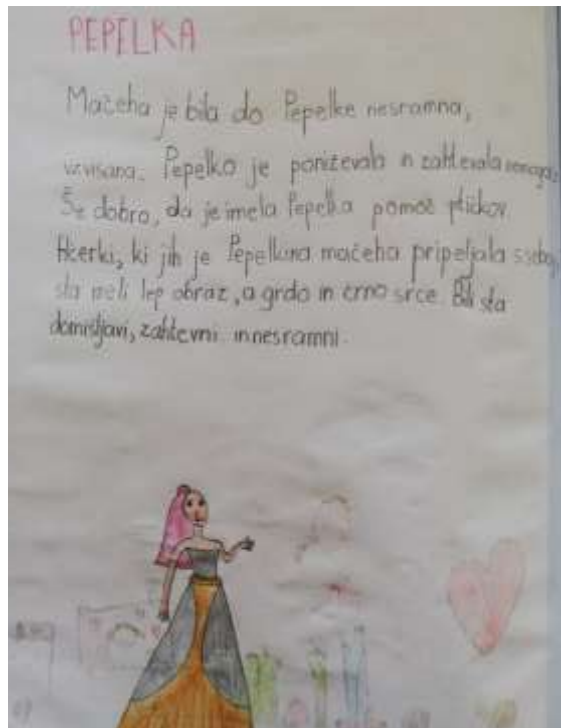 PEPELKA
Mačeha je bila do Pepelke nesramna,
vzvišena. Pepelko je poniževala in zahtevala
Še dobro, da je imela Pepelka pomoč ptičkov.
Hčerki, ki jih je Pepelkina mačeha pripeljala s seboj,
sta imeli lep obraz, a grdo in črno srce. Bili sta
domišljavi, zahtevni in nesramni.